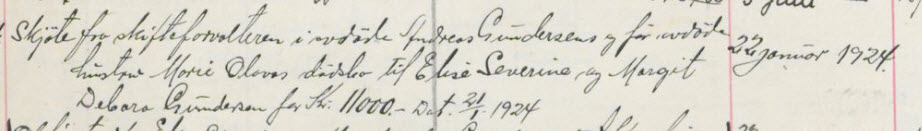 Skjøte fra skifteforvalteren i avdøde Andreas Gundersens og før avdøde 22 januar 1924.
hustru Marie Olavas dødsbo til Elise Severine og Margit
Debora Gundersen for Kr. 11000.- Dat. 21/1. 1924